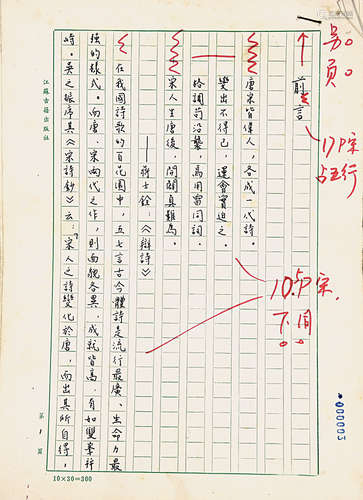 另。
页。
17P宋
占五行
前言
唐宋皆偉人，各成一代詩。
變出不得已，運會實迫之。
格調苟沿襲，焉用雷同詞。
宋人生唐後，開闢真難為。
——蔣士銓：《辯詩》
在我國詩歌的百花園中，五七言古今體詩是流行最廣、生命力最
強的樣式。而唐、宋兩代之作，則面貌各異，成就皆高，自如雙峯并
峙。吳之振序其《宋詩鈔》云：“宋人之詩變化於唐，而出其所自得，
10.5P宋.
下同
江蘇古籍出版社
000003
第 1 頁
10×30=300